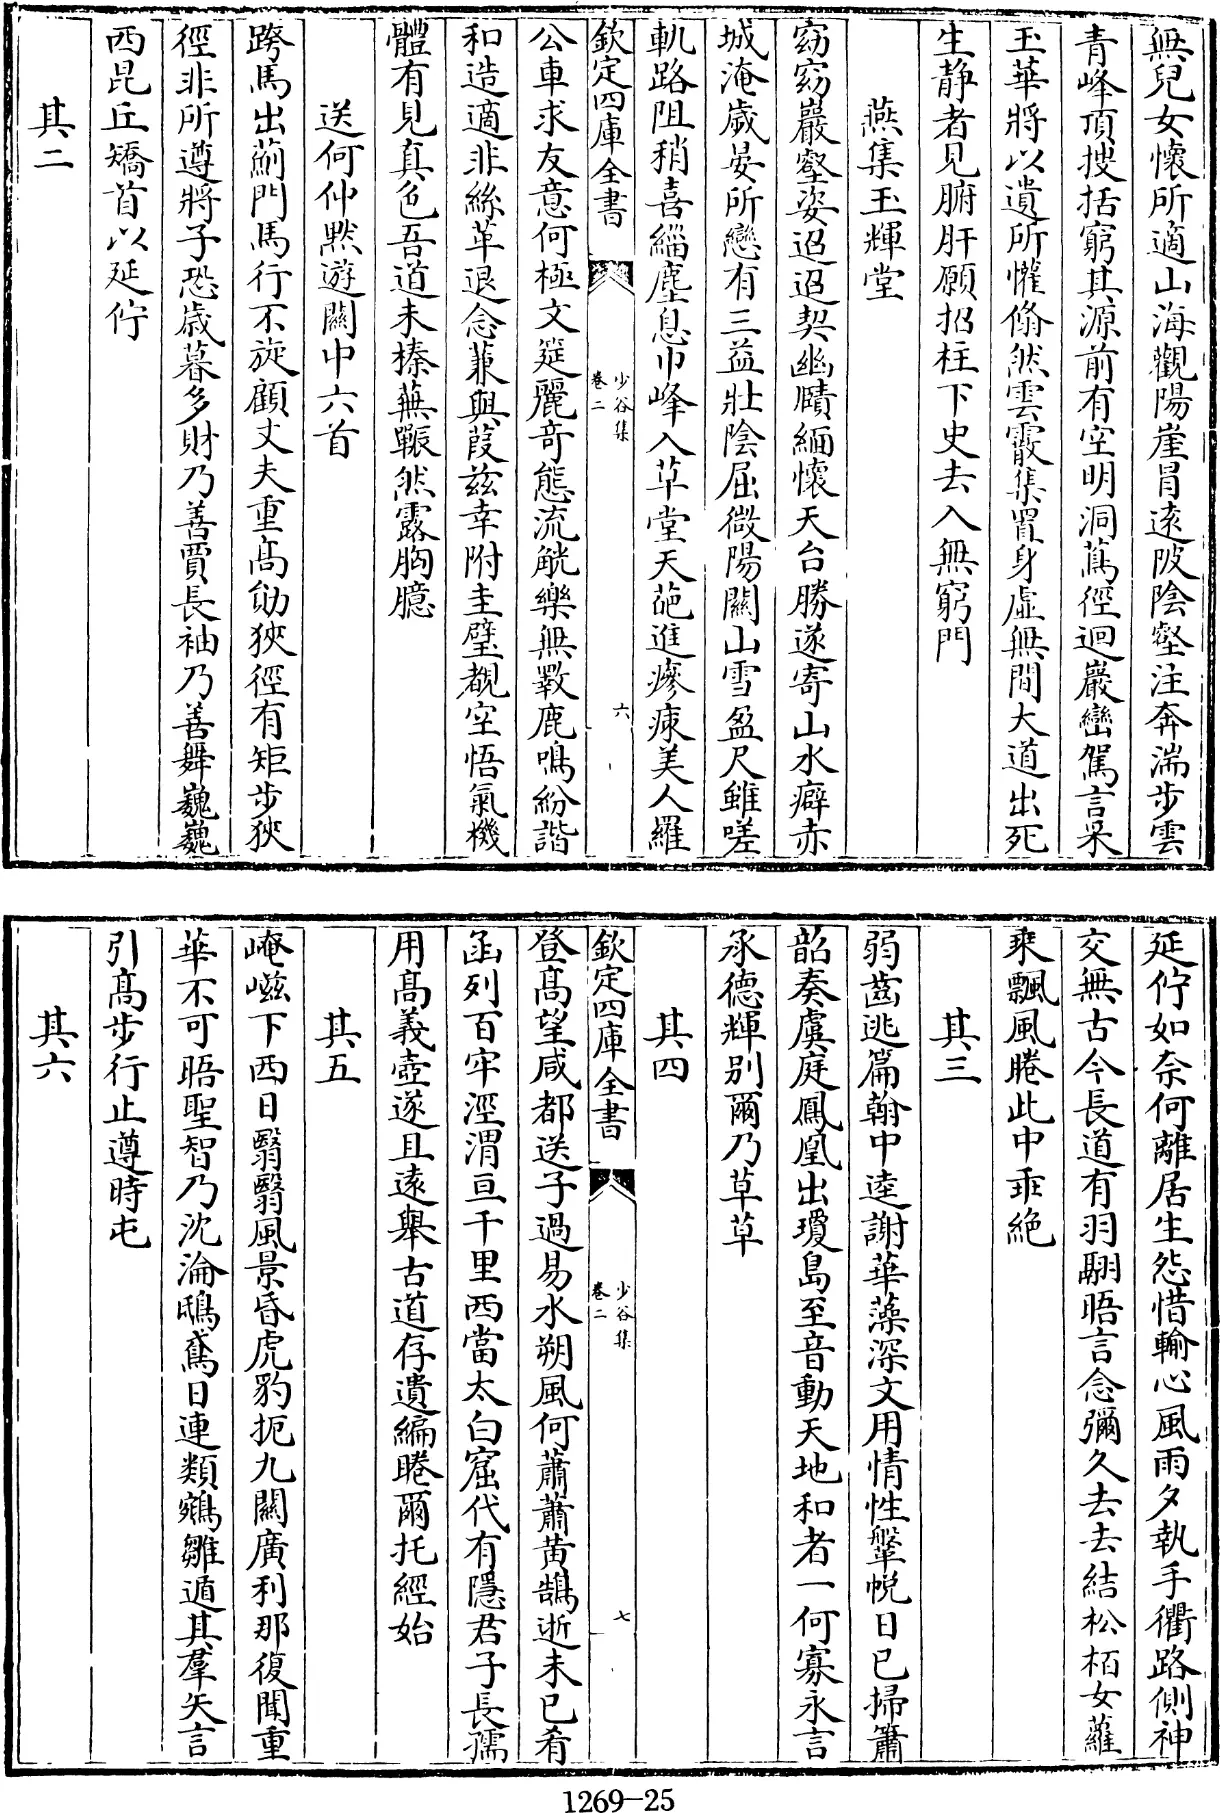 無兒女懷所適山海觀陽崖冒遠陂陰壑注奔湍步雲
青峰頂搜括窮其源前有空明洞蔦徑迴巖巒駕言采
玉華將以遺所懽翛然雲霰集置身虛無間大道出死
生静者見腑肝願招柱下史去入無窮門
燕集玉輝堂
窈窈巖壑姿迢迢契幽賾緬懷天台勝遂寄山水癖赤
城淹歲晏所戀有三益壯陰屈微陽關山雪盈尺雖嗟
軌路阻稍喜緇塵息巾峰入草堂天葩進瘳痠美人羅
欽定四庫全書
少谷集
卷二
六
公車求友意何極文筵麗奇態流觥樂無斁鹿鳴紛諧
和造適非絲革退念蒹與葭兹幸附圭璧覩空悟氣機
體有見真色吾道未榛蕪囅然露胸臆
送何仲黙遊關中六首
跨馬出薊門馬行不旋顧丈夫重髙節狹徑有矩步狹
徑非所遵將子恐歳暮多財乃善賈長袖乃善舞巍巍
西昆丘矯首以延佇
其二
延佇如奈何離居生怨惜輸心風雨夕執手衢路側神
交無古今長道有羽翮晤言念彌久去去結松栢女蘿
乘飄風睠此中乖絶
其三
弱齒逃篇翰中逵謝華藻深文用情性鞶帨日已掃簫
韶奏虞庭鳳凰出瓊島至音動天地和者一何寡永言
承德輝别爾乃草草
其四
欽定四庫全書
少谷集
卷二
七
登髙望咸都送子過易水朔風何蕭蕭黄鵠逝未已肴
函列百牢涇渭亘千里西當太白窟代有隱君子長孺
用髙義壺遂且遠舉古道存遺編睠爾托經始
其五
崦嵫下西日翳翳風景昏虎豹扼九關廣利那復聞重
華不可晤聖智乃沈淪鴟鳶日連類鵷雛遁其羣矢言
引髙步行止遵時屯
其六
1269-25